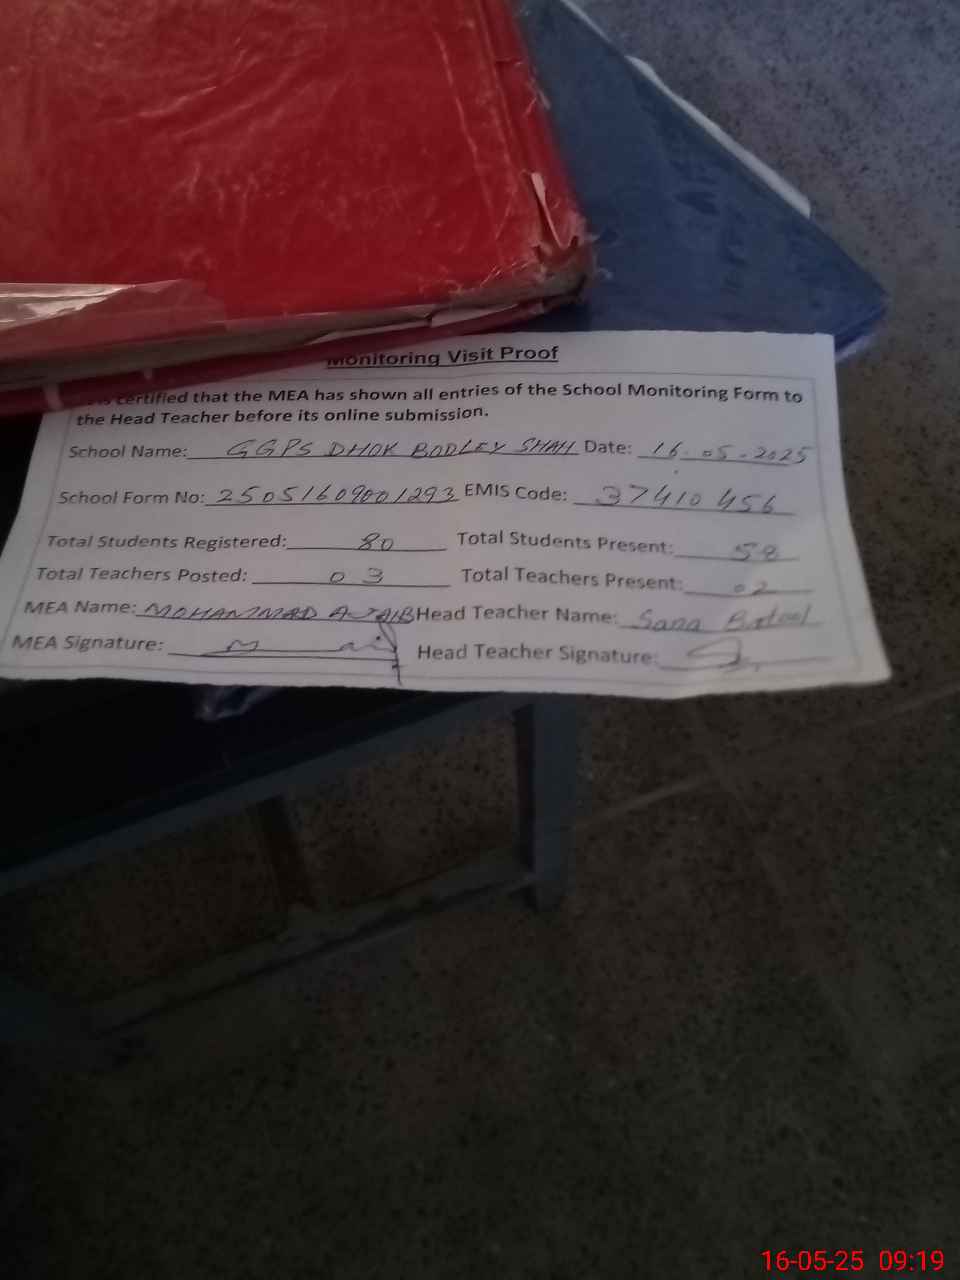 Monitoring Visit Proof
is certified that the MEA has shown all entries of the School Monitoring Form to
the Head Teacher before its online submission.
School Name: GGPS DHOK BODLEY SHAH Date: 16.05.2025
School Form No: 25051609001293 EMIS Code: 37410456
Total Students Registered: 80 Total Students Present: 58
Total Teachers Posted: 03 Total Teachers Present: 02
MEA Name: MOHAMMAD AJAIB Head Teacher Name: Sana Batool
MEA Signature: Head Teacher Signature:
16-05-25 09:19